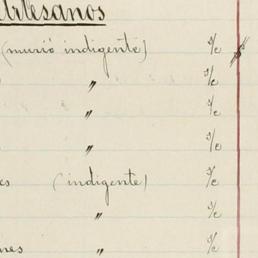 Artesanos
(murió indigente) s/c
" s/c
" s/c
" s/c
es (indigente) s/c
" s/c
nes " s/c